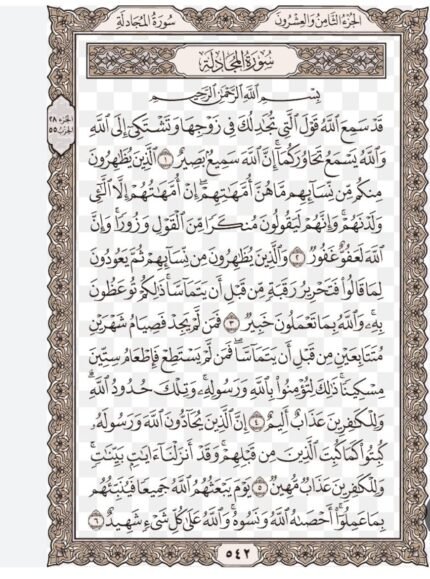 الجزء الثامن والعشرون سورة المجادلة
سورة المجادلة
الجزء ٢٨
الحزب ٥٥
بسم الله الرحمن الرحيم
قَدْ سَمِعَ ٱللَّهُ قَوْلَ ٱلَّتِى تُجَٰدِلُكَ فِى زَوْجِهَا وَتَشْتَكِىٓ إِلَى ٱللَّهِ
وَٱللَّهُ يَسْمَعُ تَحَاوُرَكُمَآ إِنَّ ٱللَّهَ سَمِيعٌۢ بَصِيرٌ ١ ٱلَّذِينَ يُظَٰهِرُونَ
مِنكُم مِّن نِّسَآئِهِم مَّا هُنَّ أُمَّهَٰتِهِمْ ۖ إِنْ أُمَّهَٰتُهُمْ إِلَّا ٱلَّٰٓـِٔى
وَلَدْنَهُمْ ۚ وَإِنَّهُمْ لَيَقُولُونَ مُنكَرًا مِّنَ ٱلْقَوْلِ وَزُورًا ۚ وَإِنَّ
ٱللَّهَ لَعَفُوٌّ غَفُورٌ ٢ وَٱلَّذِينَ يُظَٰهِرُونَ مِن نِّسَآئِهِمْ ثُمَّ يَعُودُونَ
لِمَا قَالُوا۟ فَتَحْرِيرُ رَقَبَةٍ مِّن قَبْلِ أَن يَتَمَآسَّا ۚ ذَٰلِكُمْ تُوعَظُونَ
بِهِۦ ۚ وَٱللَّهُ بِمَا تَعْمَلُونَ خَبِيرٌ ٣ فَمَن لَّمْ يَجِدْ فَصِيَامُ شَهْرَيْنِ
مُتَتَابِعَيْنِ مِن قَبْلِ أَن يَتَمَآسَّا ۖ فَمَن لَّمْ يَسْتَطِعْ فَإِطْعَامُ سِتِّينَ
مِسْكِينًا ۚ ذَٰلِكَ لِتُؤْمِنُوا۟ بِٱللَّهِ وَرَسُولِهِۦ ۚ وَتِلْكَ حُدُودُ ٱللَّهِ ۗ
وَلِلْكَٰفِرِينَ عَذَابٌ أَلِيمٌ ٤ إِنَّ ٱلَّذِينَ يُحَآدُّونَ ٱللَّهَ وَرَسُولَهُۥ
كُبِتُوا۟ كَمَا كُبِتَ ٱلَّذِينَ مِن قَبْلِهِمْ ۚ وَقَدْ أَنزَلْنَآ ءَايَٰتٍۭ بَيِّنَٰتٍ ۚ
وَلِلْكَٰفِرِينَ عَذَابٌ مُّهِينٌ ٥ يَوْمَ يَبْعَثُهُمُ ٱللَّهُ جَمِيعًا فَيُنَبِّئُهُم
بِمَا عَمِلُوٓا۟ ۚ أَحْصَىٰهُ ٱللَّهُ وَنَسُوهُ ۚ وَٱللَّهُ عَلَىٰ كُلِّ شَىْءٍ شَهِيدٌ ٦
٥٤٢